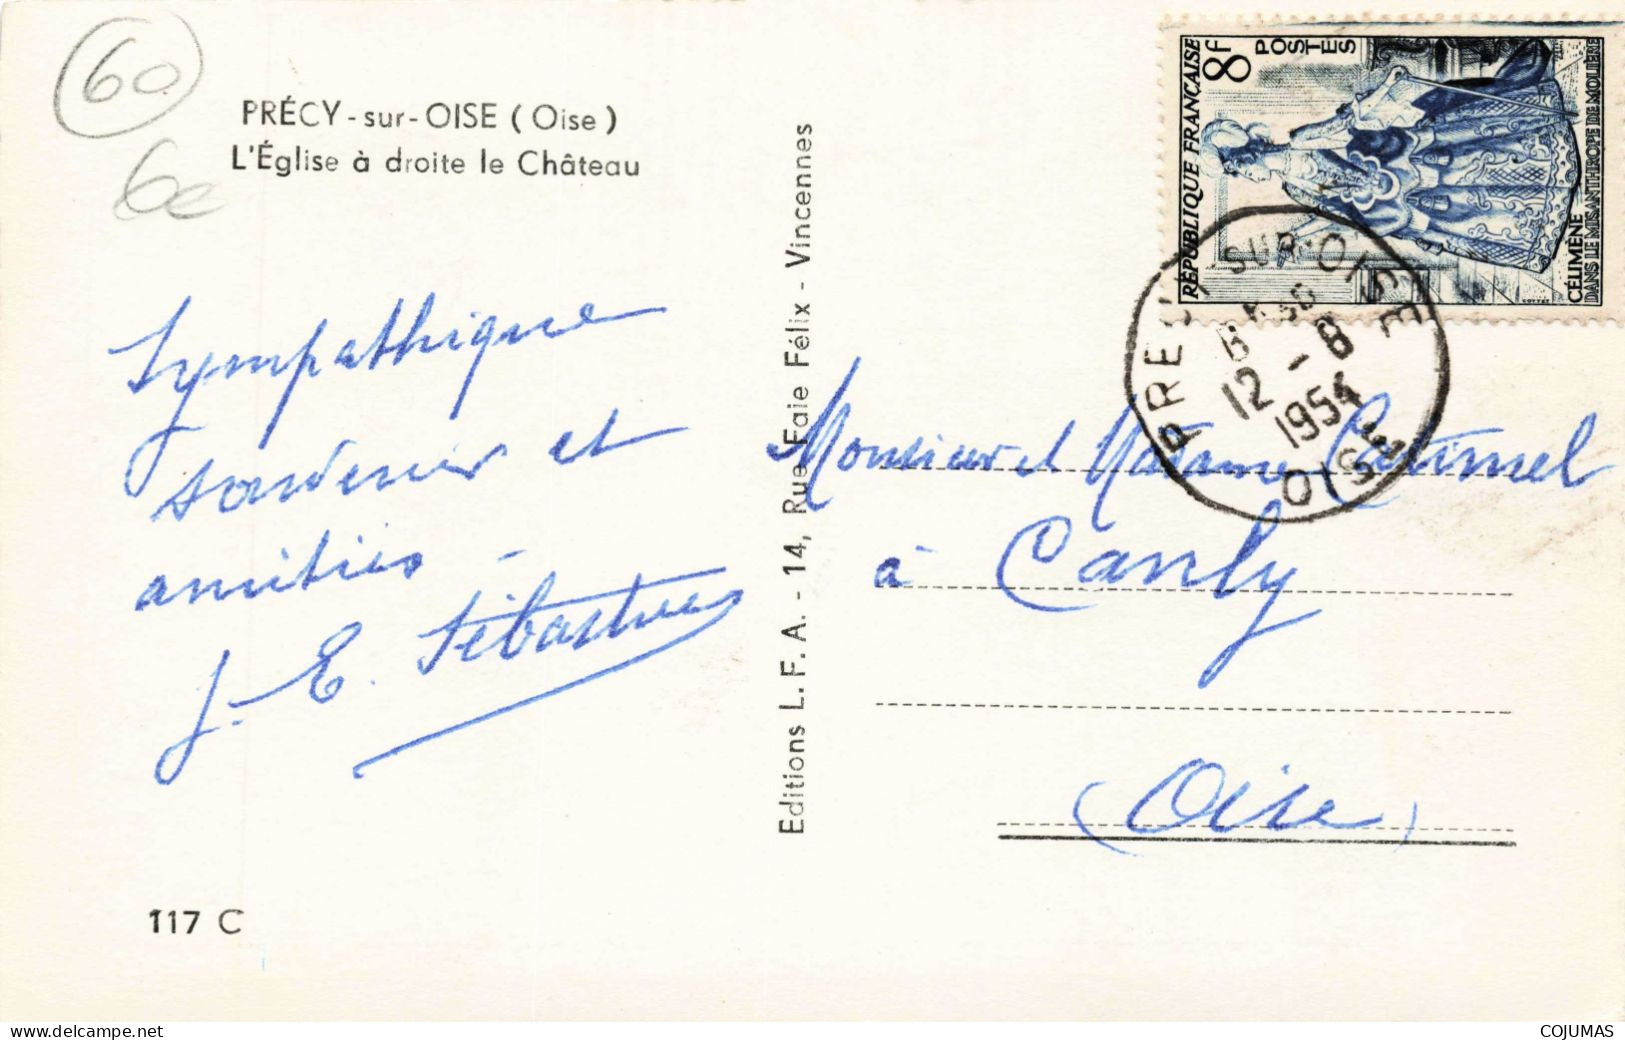 60
6e
PRÉCY - sur - OISE ( Oise )
L'Église à droite le Château
Sympathique
souvenir et
amitiés -
J. E. Sébastien
117 C
Editions L. F. A. - 14, Rue Faie Félix - Vincennes
RÉPUBLIQUE FRANÇAISE
8F
POSTES
CÉLIMÈNE
DANS LE MISANTHROPE DE MOLIÈRE
COTTET
PRECY-SUR-OISE
12 - 8
1954
OISE
Monsieur et Madame
à Canly
(Oise)
COJUMAS
www.delcampe.net